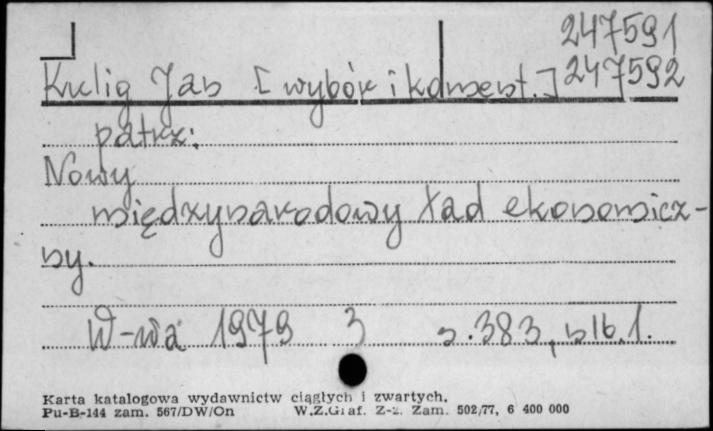 247591
Kulig Jan [wybór i koment.] 247592
patrz:
Nowy
międzynarodowy ład ekonomicz-
ny.
W-wa 1979 3 s. 383, nlb. 1.
Karta katalogowa wydawnictw ciągłych i zwartych.
Pu-B-144 zam. 567/DW/On W.Z.Graf. Z-z. Zam. 502/77, 6 400 000